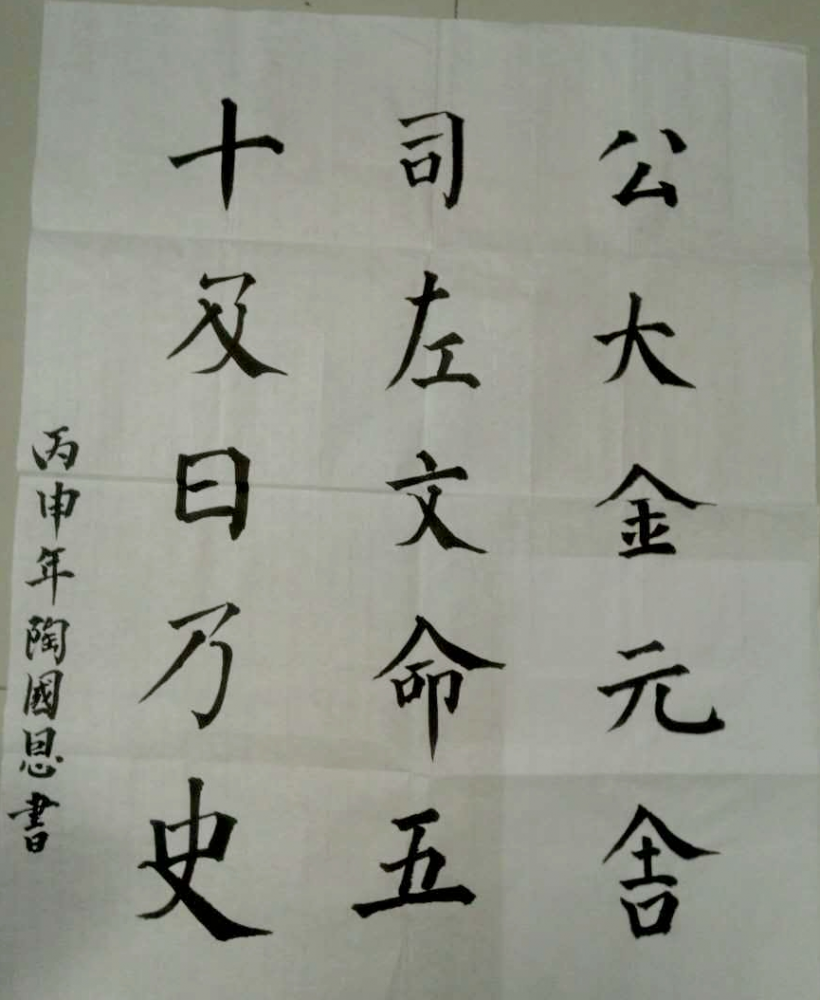 公大金元舍
司左文命五
十及曰乃史
丙申年陶國恩書